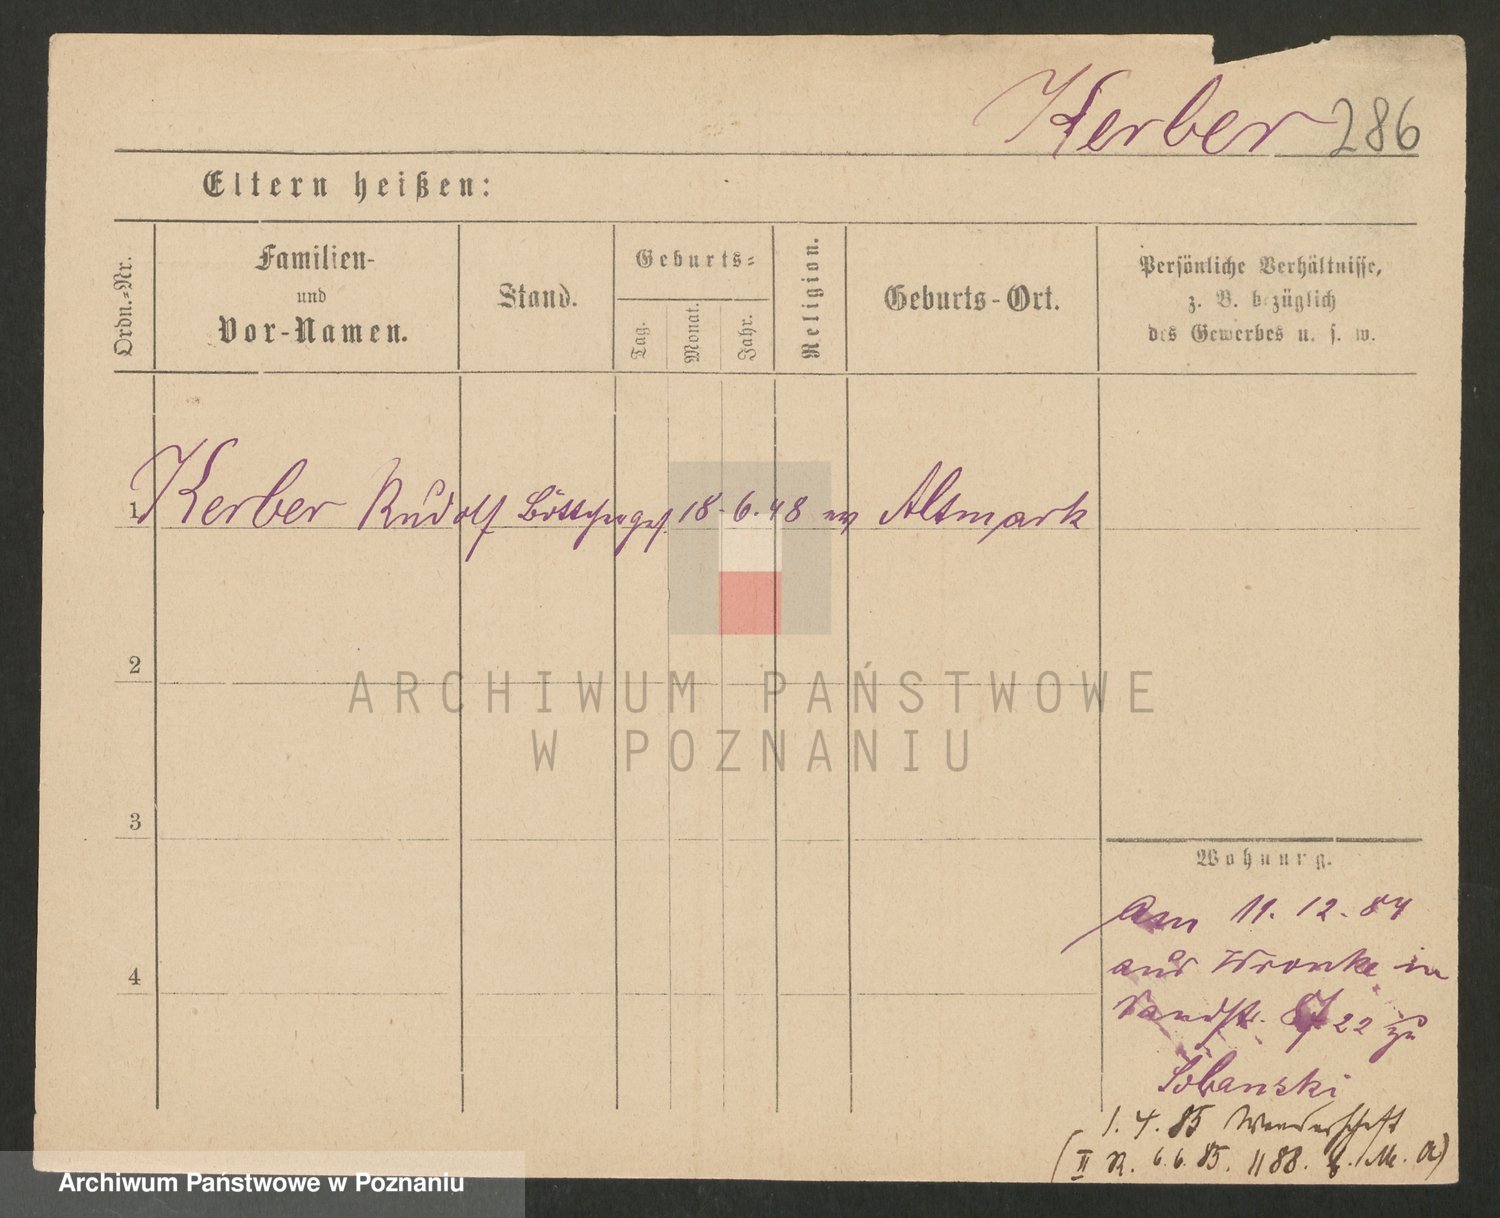 Kerber 286
Eltern heißen:
Ordn.=Nr.
Familien-
und
Vor-Namen.
Stand.
Geburts=
Tag.
Monat.
Jahr.
Religion.
Geburts-Ort.
Persönliche Verhältnisse,
z. B. bezüglich
des Gewerbes u. s. w.
1 Kerber Rudolf Böttcherges. 18. 6. 48 ev Altmark
2
3
4
Wohnung.
Am 11. 12. 84
aus Wronke in
Sandstr. 22 zu
1. 4. 85 Wanderschaft
(II R. 6. 6. 85. 1188. M. A)
ARCHIWUM PAŃSTWOWE
W POZNANIU
Archiwum Państwowe w Poznaniu